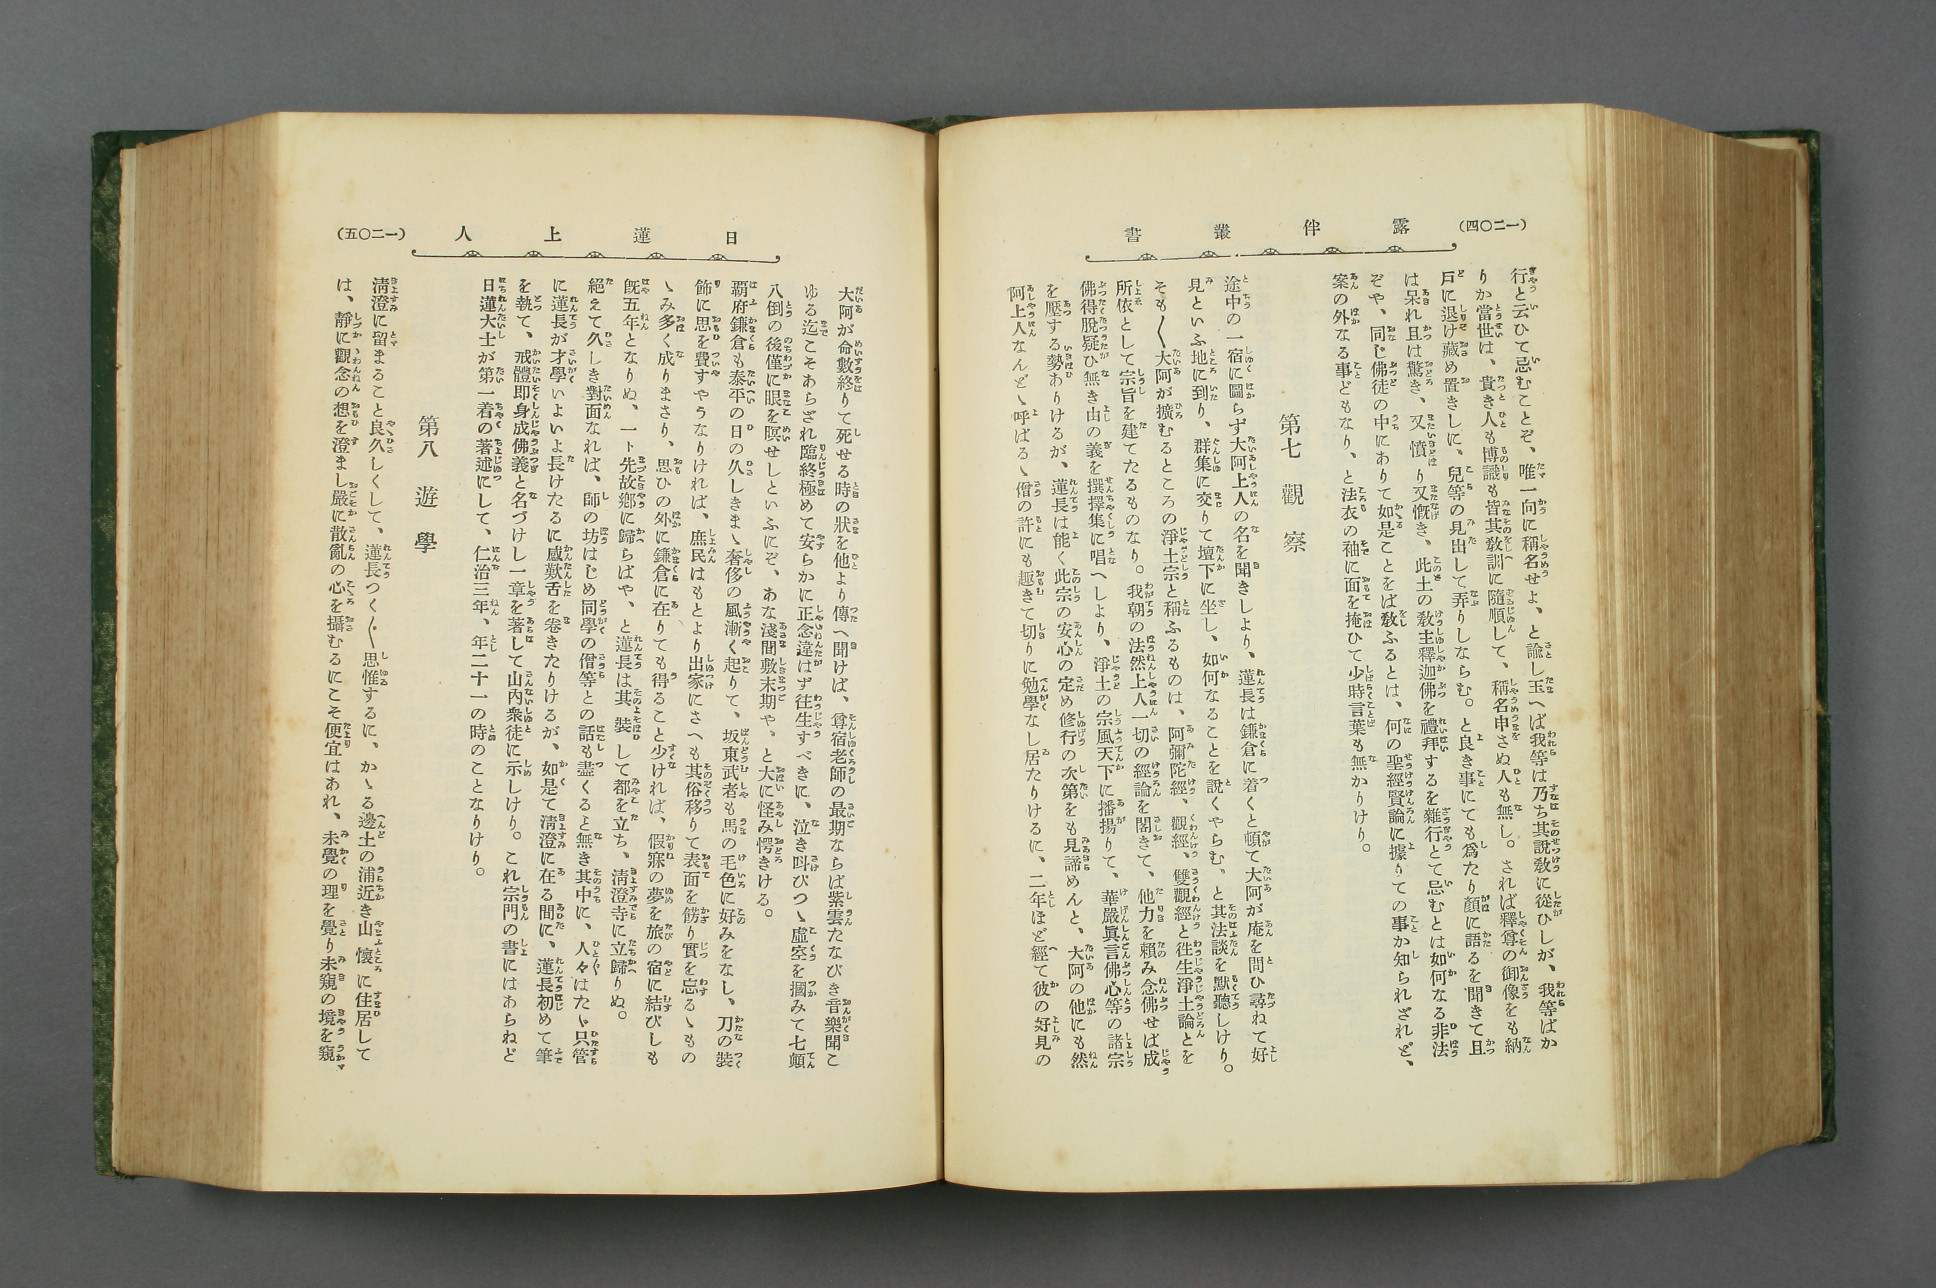 (一二〇四)
露伴叢書
行と云ひて忌むことぞ、唯一向に稱名せよ、と諭し玉へば我等は乃ち其說敎に從ひしが、我等ばか
りか當世は、貴き人も博識も皆其敎訓に隨順して、稱名申さぬ人も無し。されば釋尊の御像をも納
戶に退け藏め置きしに、兒等の見出して弄りしならむ。と良き事にても爲たり顏に語るを聞きて且
は呆れ且は驚き、又憤り又慨き、此土の敎主釋迦佛を禮拜するを雜行とて忌むとは如何なる非法
ぞや、同じ佛徒の中にありて如是ことをば敎ふるとは、何の聖經賢論に據りての事か知られざれど、
案の外なる事どもなり、と法衣の袖に面を掩ひて少時言葉も無かりけり。
第七 觀察
途中の一宿に圖らず大阿上人の名を聞きしより、蓮長は鎌倉に着くと頓て大阿が庵を問ひ尋ねて好
見といふ地に到り、群集に交りて壇下に坐し、如何なることを說くやらむ。と其法談を默聽しけり。
そも〳〵大阿が擴むるところの淨土宗と稱ふるものは、阿彌陀經、觀經、雙觀經と往生淨土論とを
所依として宗旨を建てたるものなり。我朝の法然上人一切の經論を閣きて、他力を賴み念佛せば成
佛得脫疑ひ無き由の義を撰擇集に唱へしより、淨土の宗風天下に播揚りて、華嚴眞言佛心等の諸宗
を壓する勢ありけるが、蓮長は能く此宗の安心の定め修行の次第をも見諦めんと、大阿の他にも然
阿上人なんどゝ呼ばるゝ僧の許にも趣きて切りに勉學なし居たりけるに、二年ほど經て彼の好見の
日蓮上人
(一二〇五)
大阿が命數終りて死せる時の狀を他より傳へ聞けば、尊宿老師の最期ならば紫雲たなびき音樂聞こ
ゆる迄こそあらざれ臨終極めて安らかに正念違はず往生すべきに、泣き叫びつゝ虛空を摑みて七顚
八倒の後僅に眼を瞑せしといふにぞ、あな淺間敷末期や、と大に怪み愕きける。
覇府鎌倉も泰平の日の久しきまゝ奢侈の風漸く起りて、坂東武者も馬の毛色に好みをなし、刀の裝
飾に思を費すやうなりければ、庶民はもとより出家にさへも其俗移りて表面を餝り實を忘るゝもの
ゝみ多く成りまさり、思ひの外に鎌倉に在りても得ること少ければ、假寐の夢を旅の宿に結びしも
旣五年となりぬ、一ト先故鄕に歸らばや、と蓮長は其裝して都を立ち、淸澄寺に立歸りぬ。
絕えて久しき對面なれば、師の坊はじめ同學の僧等との話も盡くると無き其中に、人々はたゞ只管
に蓮長が才學いよいよ長けたるに感歎舌を卷きたりけるが、如是て淸澄に在る間に、蓮長初めて筆
を執て、戒體即身成佛義と名づけし一章を著して山內衆徒に示しけり。これ宗門の書にはあらねど
日蓮大士が第一着の著述にして、仁治三年、年二十一の時のことなりけり。
第八 遊學
淸澄に留まること良久しくして、蓮長つく〴〵思惟するに、かゝる邊土の浦近き山懷に住居して
は、靜に觀念の想を澄まし嚴に散亂の心を攝むるにこそ便宜はあれ、未覺の理を覺り未窺の境を窺